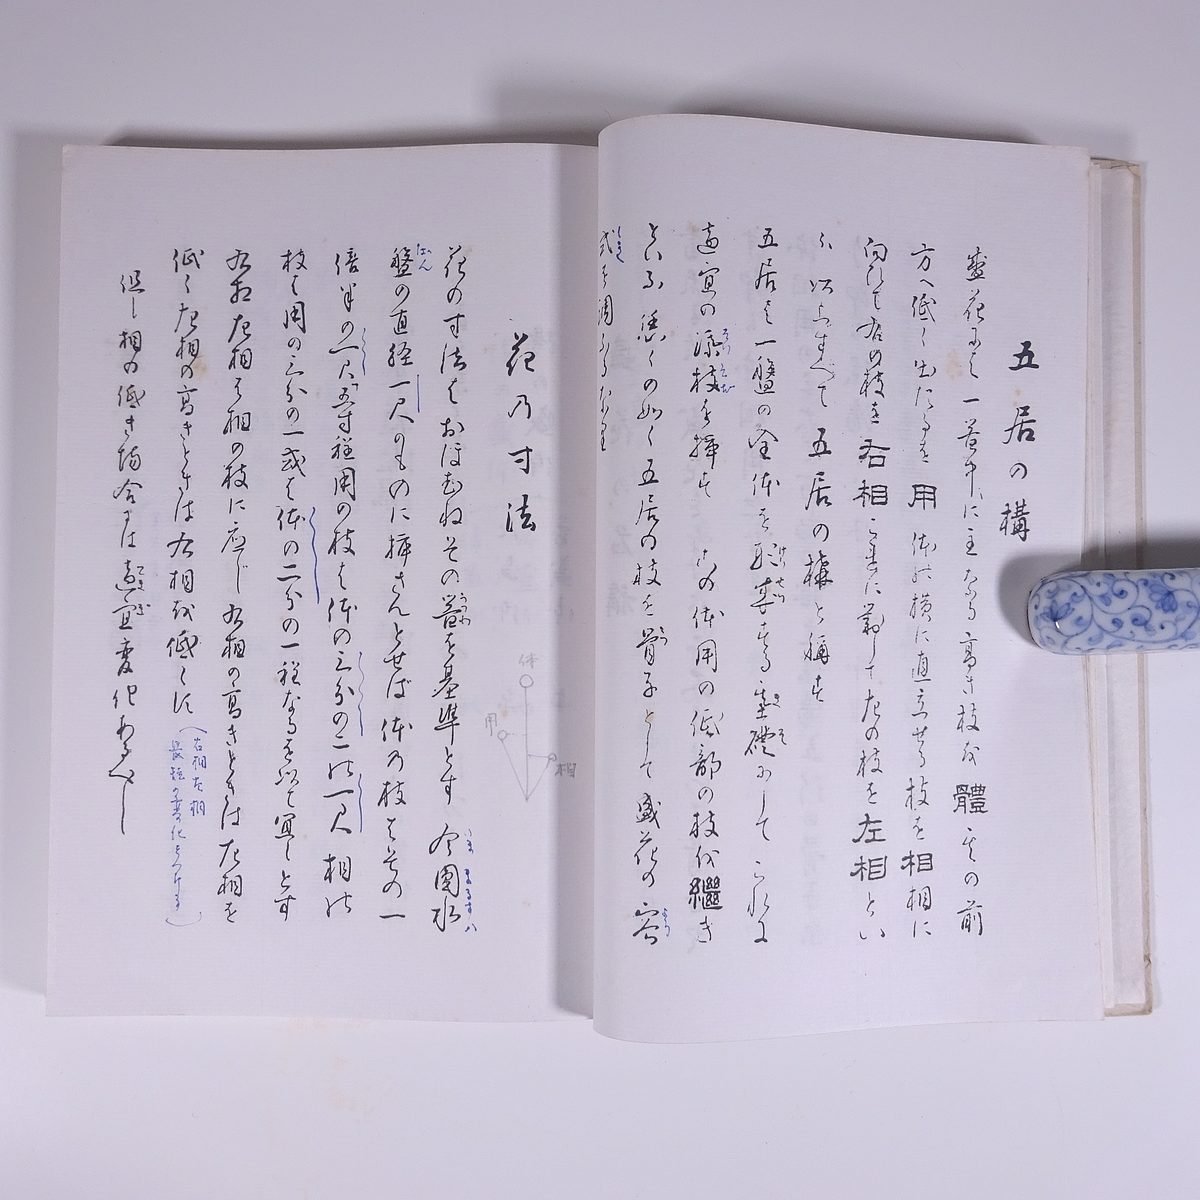 五居の構
盛花にて一器中に主なる高き枝を體其の前
方へ低く出したるを用体の横に直立せる枝を相相に
向ひて右の枝を右相これに対して左の枝を左相とい
ふ以上すべて五居の構と稱す
五居は一盤の全体を駆幸する基礎にしてこれに
適宜の添枝を挿すこの体用の低部の枝を繼ぎ
といふ 恁くの如く五居の枝を骨子として盛花の容
式を調ふるなり
花乃寸法
花の寸法はおほむねその器を基準とす 今圓水
盤の直経一尺のものに挿さんとせば体の枝はその一
倍半の一尺五寸程用の枝は体の三分の二の一尺相の
枝は用の三分の一或は体の二分の一程なるを以て宜しとす
右相左相は相の枝に応じ右相の高きときは左相を
低く左相の高きときは右相を低くに
(右相左相
長短の変化をつける)
但し相の低き場合には適宜変化あるべし
体
用
相